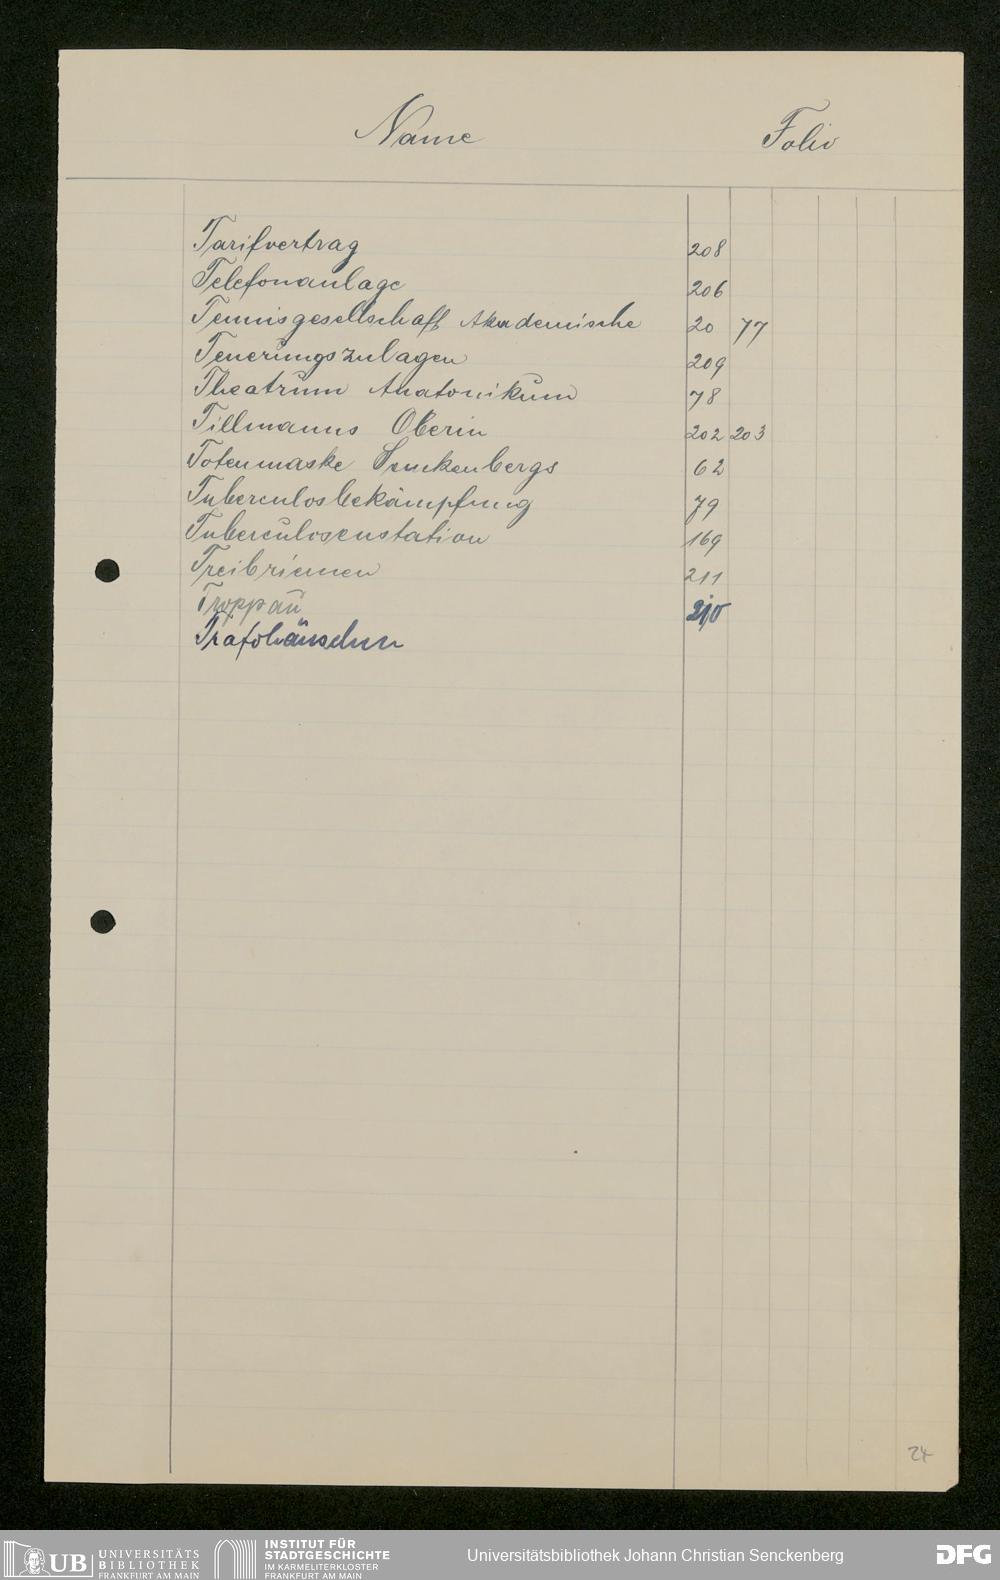 Name Folio
Tarifvertrag 208
Telefonanlage 206
Tennisgesellschaft Akademische 20 77
Teuerungszulagen 209
Theatrum Anatomikum 78
Tillmanns Oberin 202 203
Totenmaske Senckenbergs 62
Tuberculosbekämpfung 79
Tuberculosenstation 169
Treibriemen 211
Troppau 210
Trafohäuschen
24
UB UNIVERSITÄTS BIBLIOTHEK FRANKFURT AM MAIN
INSTITUT FÜR STADTGESCHICHTE IM KARMELITERKLOSTER FRANKFURT AM MAIN
Universitätsbibliothek Johann Christian Senckenberg
DFG